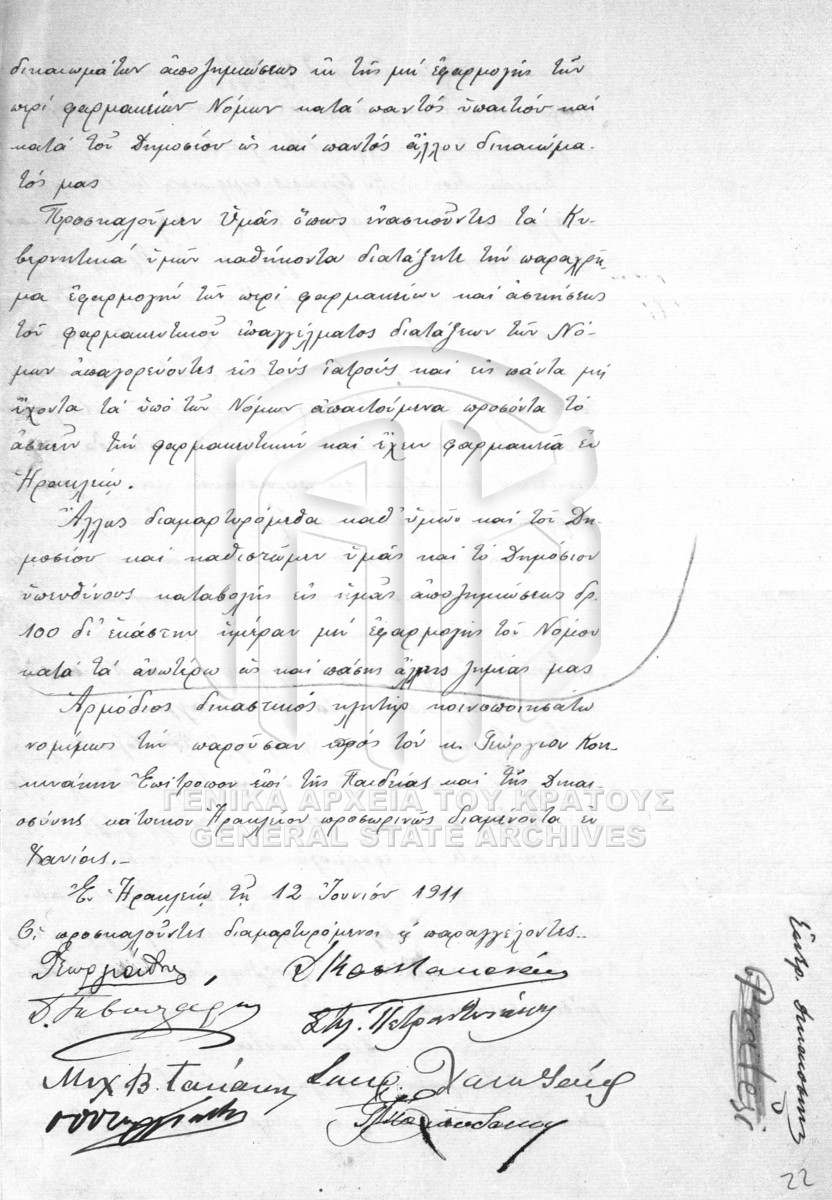 δικαιωμάτων ἀποζημιώσεως ἐκ τῆς μή ἐφαρμογῆς τῶν
περί φαρμακείων Νόμων κατά παντός ὑπαιτίου καί
κατά τοῦ Δημοσίου ὡς καί παντός ἄλλου δικαιώμα-
τός μας
Προσκαλοῦμεν Ὑμᾶς ὅπως ἐνασκοῦντες τά Κυ-
βερνητικά ὑμῶν καθήκοντα διατάξητε τήν παραχρῆ-
μα ἐφαρμογήν τῶν περί φαρμακείων καί ἀσκήσεως
τοῦ φαρμακευτικοῦ ἐπαγγέλματος διατάξεων τῶν Νό-
μων ἀπαγορεύοντες εἰς τούς ἰατρούς καί εἰς πάντα μή
ἔχοντα τά ὑπό τῶν Νόμων ἀπαιτούμενα προσόντα τό
ἀσκεῖν τήν φαρμακευτικήν καί ἔχειν φαρμακεῖα ἐν
Ἡρακλείῳ.
Ἄλλως διαμαρτυρόμεθα καθ' ὑμῶν καί τοῦ Δη-
μοσίου καί καθιστῶμεν ὑμᾶς καί τό Δημόσιον
ὑπευθύνους καταβολῆς εἰς ἡμᾶς ἀποζημιώσεως δρ.
100 δι' ἑκάστην ἡμέραν μή ἐφαρμογῆς τοῦ Νόμου
κατά τά ἀνωτέρω ὡς καί πάσης ἄλλης ζημίας μας
Ἁρμόδιος δικαστικός κλητήρ κοινοποιησάτω
νομίμως τήν παροῦσαν πρός τόν κ. Γεώργιον Κοκ-
κινάκην Ἐπίτροπον ἐπί τῆς Παιδείας καί τῆς Δικαι-
οσύνης κάτοικον Ἡρακλείου προσωρινῶς διαμένοντα ἐν
Χανίοις.-
Ἐν Ἡρακλείῳ τῇ 12 Ἰουνίου 1911
Οἱ προσκαλοῦντες διαμαρτυρόμενοι καί παραγγέλοντες.
Στυλ. Πετρ
Μιχ Β.
Ἐπιτρ. Δικαιοσύνης
22
ΓΕΝΙΚΑ ΑΡΧΕΙΑ ΤΟΥ ΚΡΑΤΟΥΣ
GENERAL STATE ARCHIVES